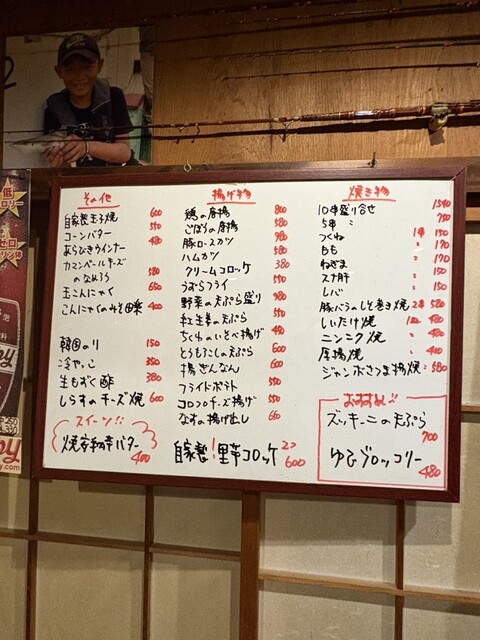 その他
自家製玉子焼 600
コーンバター 550
あらびきウインナー 480
カマンベールチーズ
のなめろう 580
玉こんにゃく 650
こんにゃくのみそ田楽 400
韓国のり 150
冷やっこ 350
生もずく酢 380
しらすのチーズ焼 600
スイーツ!!
焼安納芋バター 400
揚げ物
鶏の唐揚 800
ごぼうの唐揚 580
豚ロースカツ 980
ハムカツ
クリームコロッケ 380
うずらフライ 550
野菜の天ぷら盛り 980
紅生姜の天ぷら 550
ちくわのいそべ揚げ 450
とうもろこしの天ぷら
揚ぎんなん
フライドポテト 550
コロコロチーズ揚げ 550
なすの揚げ出し 660
自家製!里芋コロッケ 2コ 600
焼き物
10串盛り合せ 1540
5串 〃 750
つくね 1串 150
もも 〃 170
ねぎま 〃 170
スナ肝 〃 150
レバ 〃 150
豚バラのしそ巻き焼 2串 580
しいたけ焼 480
ニンニク焼 〃 480
厚揚焼 〃 400
ジャンボさつま揚焼 580
おすすめ!!
ズッキーニの天ぷら
700
ゆでブロッコリー
480
低
ゼロ
.com